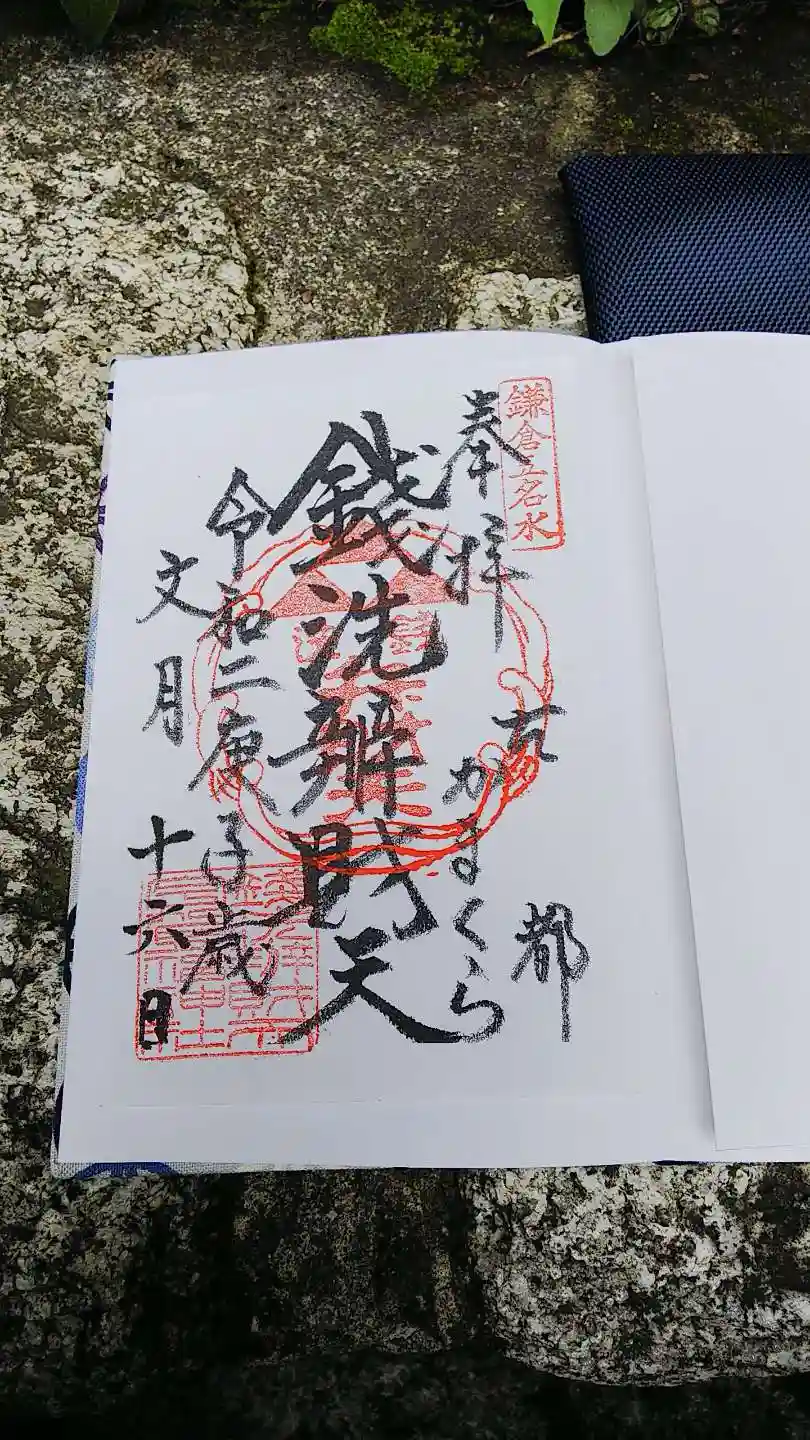 鎌倉五名水
奉拝
古都
かまくら
銭洗辧財天
令和二庚子歳
文月
十六日